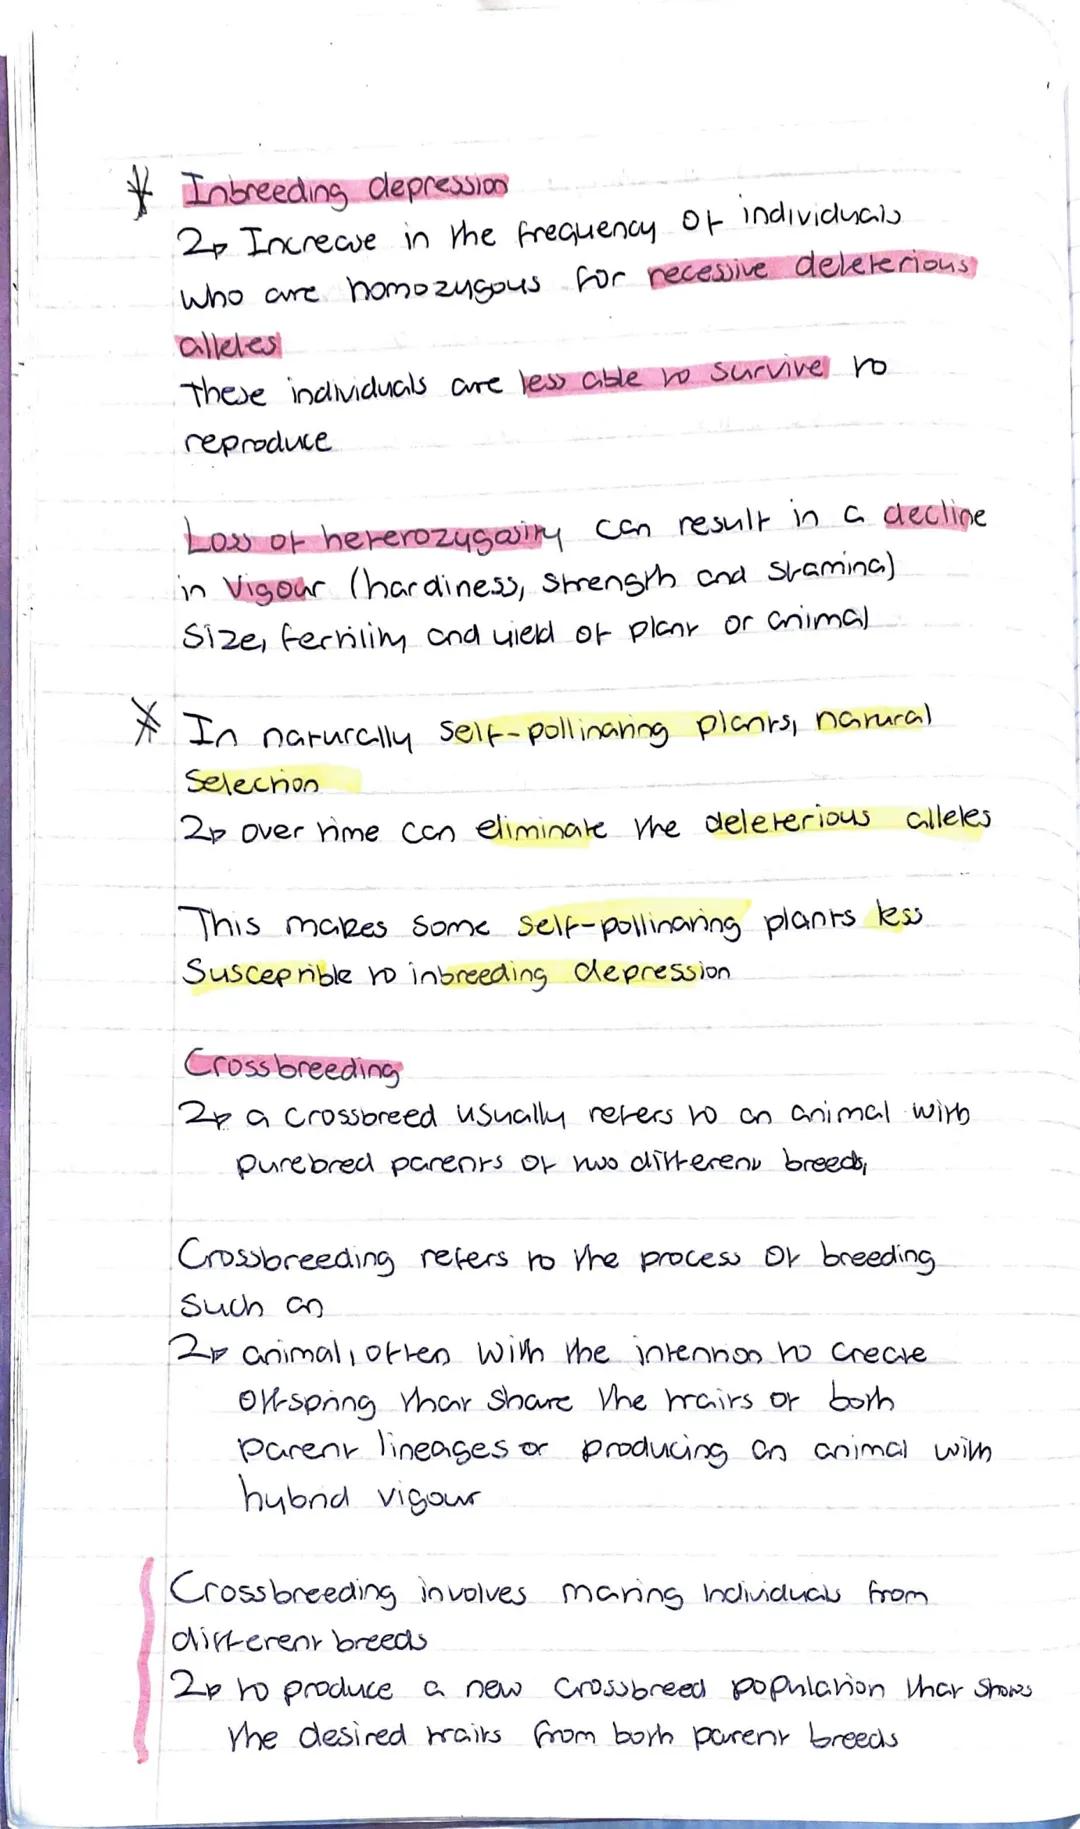 * Inbreeding depression
↳ Increase in the frequency of individuals
who are homozygous for recessive deleterious
alleles
These individuals are less able to survive to
reproduce
Loss of heterozygosity can result in a decline
in vigour (hardiness, strength and stamina)
size, fertility and yield of plant or animal
* In naturally self-pollinating plants, natural
selection
↳ over time can eliminate the deleterious alleles
This makes some self-pollinating plants less
susceptible to inbreeding depression
Crossbreeding
↳ a crossbreed usually refers to an animal with
purebred parents of two different breeds,
Crossbreeding refers to the process of breeding
such an
↳ animal, often with the intention to create
offspring that share the traits of both
parent lineages or producing an animal with
hybrid vigour
Crossbreeding involves mating individuals from
different breeds
↳ to produce a new crossbreed population that shows
the desired traits from both parent breeds